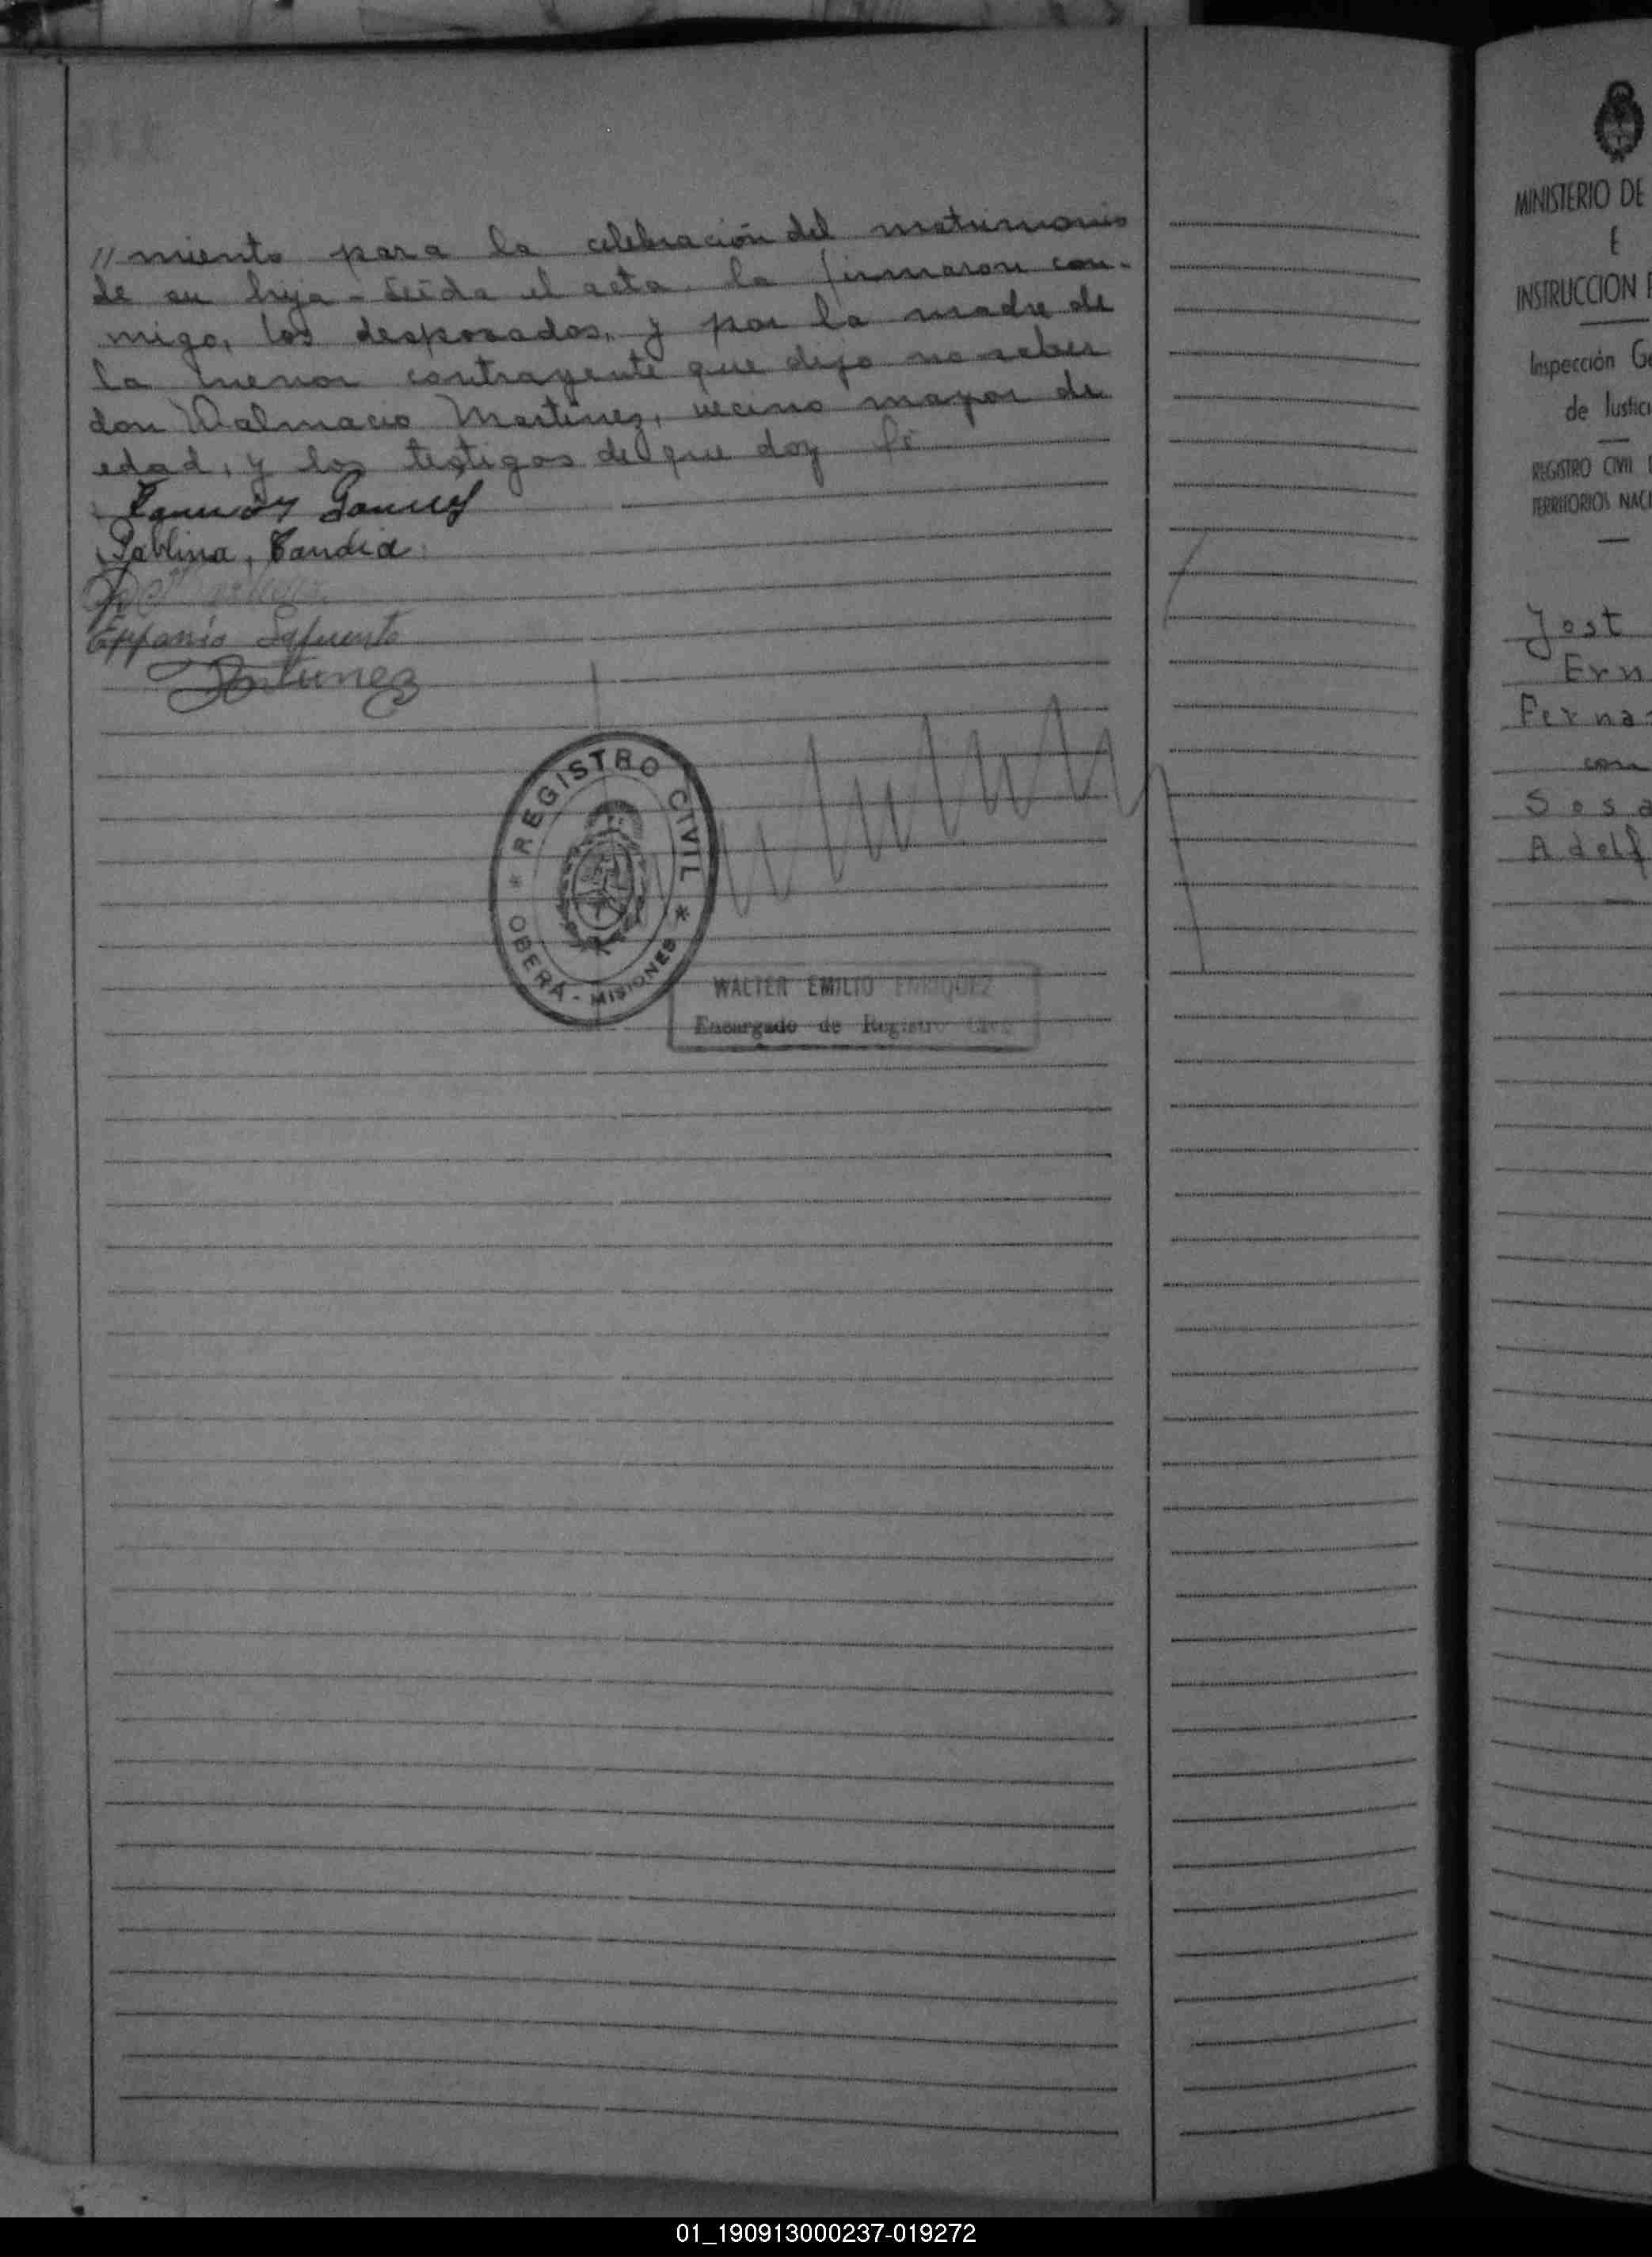 // miento para la celebración del matrimonio
de su hija - Leída el acta, la firmaron con-
migo, los desposados, y por la madre de
la menor contrayente que dijo no saber
don Dalmacio Martínez, vecino mayor de
edad, y los testigos de que doy fé
Pablina, Candia
Epifanio Lafuente
Antunez
REGISTRO CIVIL
OBERÁ - MISIONES
WALTER EMILIO ENRIQUEZ
Encargado de Registro Civil
MINISTERIO DE
E
INSTRUCCION
Inspección Ge
de Justici
REGISTRO CIVIL
TERRITORIOS NACI
Jost
Ern
Ferna
con
Sosa
Adelf
01_190913000237-019272